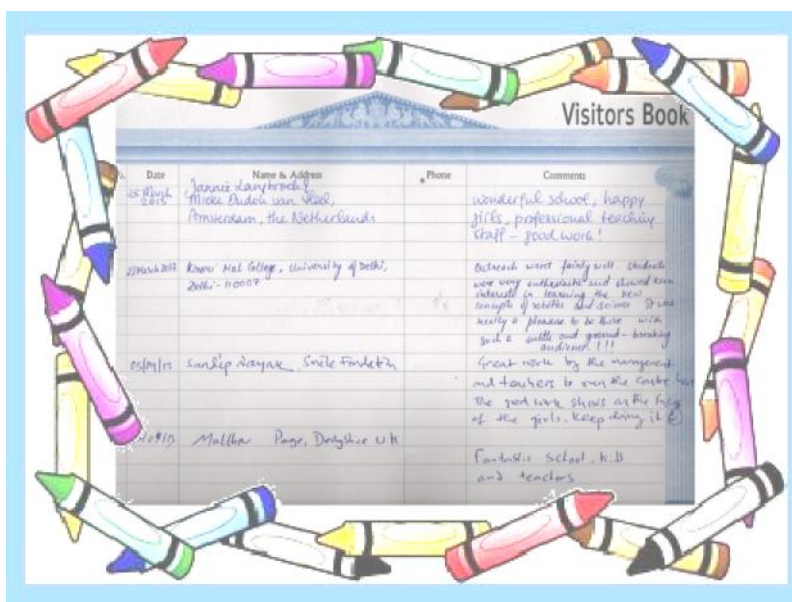 Visitors Book
Date Name & Address Phone Comments
25 March
2015
Mieke
Amsterdam, the Netherlands
wonderful school, happy
girls, professional teaching
staff - good work!
Mal College, University of Delhi,
Delhi - 110007
Outreach went fairly well. Students
were very enthusiastic and showed keen
interests in learning the new
concepts of robotics and science. It was
really a pleasure to be there with
such a subtle and ground-breaking
audience!!!
05/09/15 Sandip Nayak, Smile
Great work by the management
and teachers to run the centre
The good work shows on the face
of the girls. Keep doing it
Page, Derbyshire U.K
Fantastic school, kids
and teachers